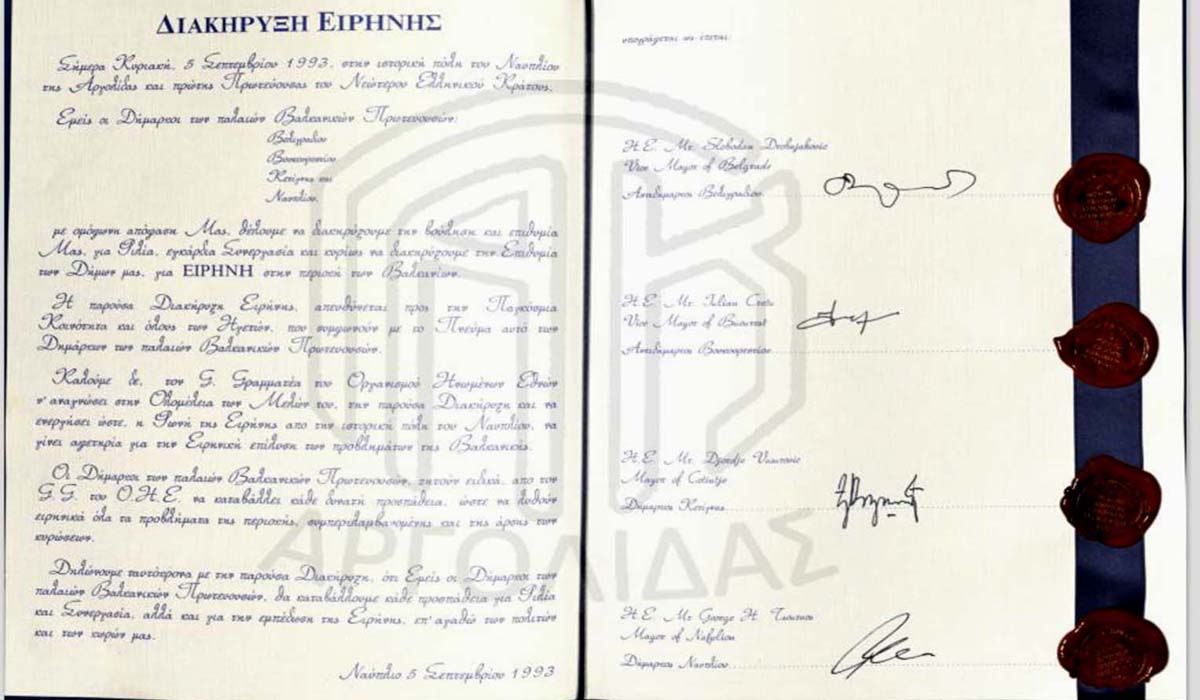 ΔΙΑΚΗΡΥΞΗ ΕΙΡΗΝΗΣ
Σήμερα Κυριακή, 5 Σεπτεμβρίου 1993, στην ιστορική πόλη του Ναυπλίου
της Αργολίδας και πρώτης Πρωτεύουσας του Νεώτερου Ελληνικού Κράτους,
Εμείς οι Δήμαρχοι των παλαιών Βαλκανικών Πρωτευουσών:
Βελιγραδίου
Βουκουρεστίου
Κετίγνης και
Ναυπλίου,
με ομόφωνη απόφαση Μας, θέλουμε να διακηρύξουμε την βούληση και επιθυμία
Μας, για Φιλία, εγκάρδια Συνεργασία και κυρίως να διακηρύξουμε την Επιθυμία
των Δήμων μας, για ΕΙΡΗΝΗ στην περιοχή των Βαλκανίων.
Η παρούσα Διακήρυξη Ειρήνης, απευθύνεται προς την Παγκόσμια
Κοινότητα και όλους των Ηγετών, που συμφωνούν με το Πνεύμα αυτό των
Δημάρχων των παλαιών Βαλκανικών Πρωτευουσών.
Καλούμε δε, τον Γ. Γραμματέα του Οργανισμού Ηνωμένων Εθνών
ν' αναγνώσει στην Ολομέλεια των Μελών του, την παρούσα Διακήρυξη και να
ενεργήσει ώστε, η Φωνή της Ειρήνης απο την ιστορική πόλη του Ναυπλίου, να
γίνει αφετηρία για την Ειρηνική επίλυση των προβλημάτων της Βαλκανικής.
Οι Δήμαρχοι των παλαιών Βαλκανικών Πρωτευουσών, ζητούν ειδικά, απο τον
Γ.Γ. του Ο.Η.Ε. να καταβάλλει κάθε δυνατή προσπάθεια, ώστε να λυθούν
ειρηνικά όλα τα προβλήματα της περιοχής, συμπεριλαμβανομένης και της άρσης των
κυρώσεων.
Δηλώνουμε ταυτόχρονα με την παρούσα Διακήρυξη, ότι Εμείς οι Δήμαρχοι των
παλαιών Βαλκανικών Πρωτευουσών, θα καταβάλλουμε κάθε προσπάθεια για Φιλία
και Συνεργασία, αλλά και για την εμπέδωση της Ειρήνης, επ' αγαθώ των πολιτών
και των χωρών μας.
Ναύπλιο 5 Σεπτεμβρίου 1993
υπογράφεται ως έπεται:
H.E. Mr. Slobodan
Vice Mayor of Belgrade
Αντιδήμαρχος Βελιγραδίου
H.E. Mr. Iulian
Vice Mayor of
Αντιδήμαρχος Βουκουρεστίου
H.E. Mr. Djordje
Mayor of
Δήμαρχος Κετίγνης
H.E. Mr George H.
Mayor of Nafplion
Δήμαρχος Ναυπλίου
ΑΡΓΟΛΙΔΑΣ